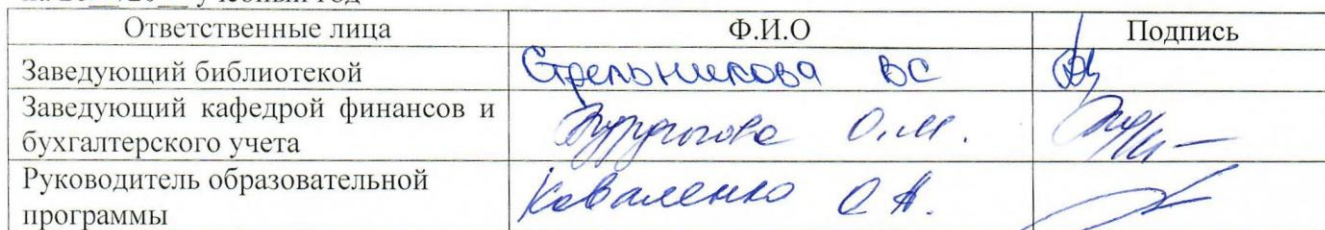 на 20__/20__ учебный год
Ответственные лица Ф.И.О Подпись
Заведующий библиотекой Стрельникова ВС
Заведующий кафедрой финансов и
бухгалтерского учета О.М.
Руководитель образовательной
программы Коваленко О А.